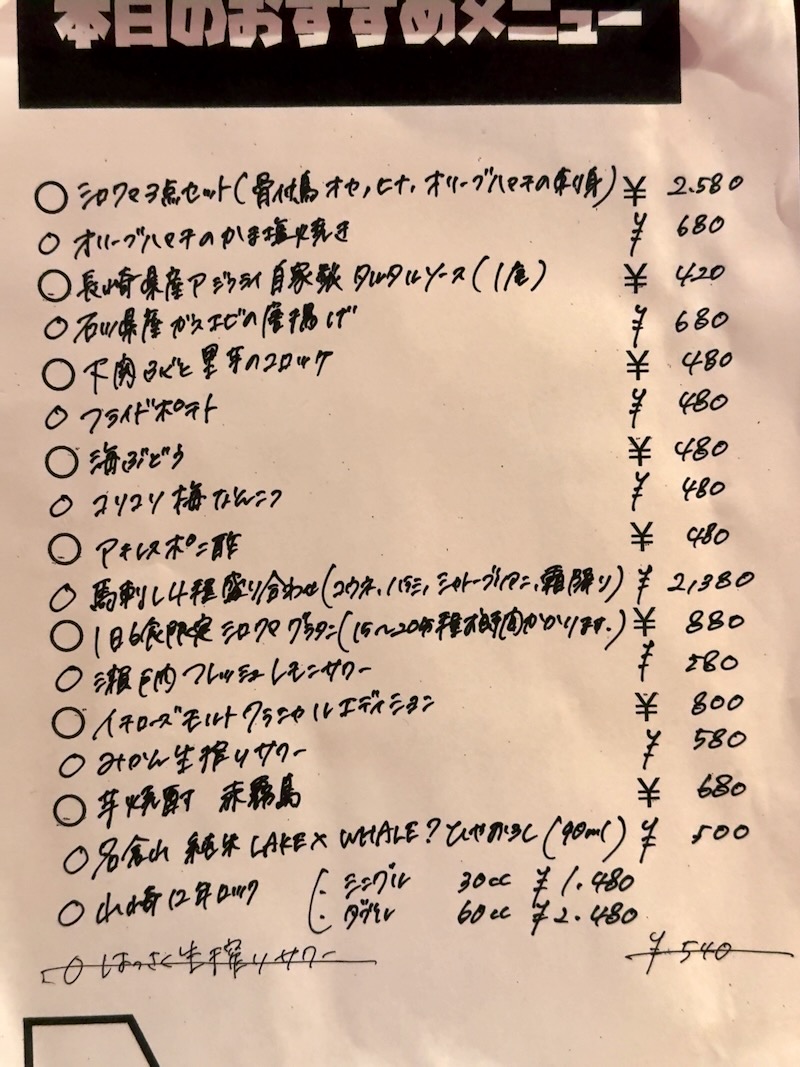 本日のおすすめメニュー
○ シロクマ3点セット(骨付鳥 オヤ,ヒナ,オリーブハマチの刺身) ¥ 2.580
○ オリーブハマチのかま塩焼き ¥ 680
○ 長崎県産アジフライ 自家製 タルタルソース(1尾) ¥ 420
○ 石川県産ガスエビの唐揚げ ¥ 680
○ 下関ふぐと里芋のコロッケ ¥ 480
○ フライドポテト ¥ 480
○ 海ぶどう ¥ 480
○ コリコリ梅なんこつ ¥ 480
○ アキレスポン酢 ¥ 480
○ 馬刺し4種盛り合わせ(コウネ,ハラミ,シャトーブリアン,霜降り) ¥ 2,380
○ 1日6食限定 シロクマグラタン(15~20分程お時間かかります.) ¥ 880
○ 瀬戸内フレッシュレモンサワー ¥ 580
○ イチローズモルトクラシカルエディション ¥ 800
○ みかん生搾りサワー ¥ 580
○ 芋焼酎 赤霧島 ¥ 680
○ 名倉山 純米 LAKE× WHALE? ひやおろし (90ml) ¥ 500
○ 山崎12年ロック (・シングル 30cc ¥ 1.480
・ダブル 60cc ¥ 2.480
○ はっさく生搾りサワー ¥ 540